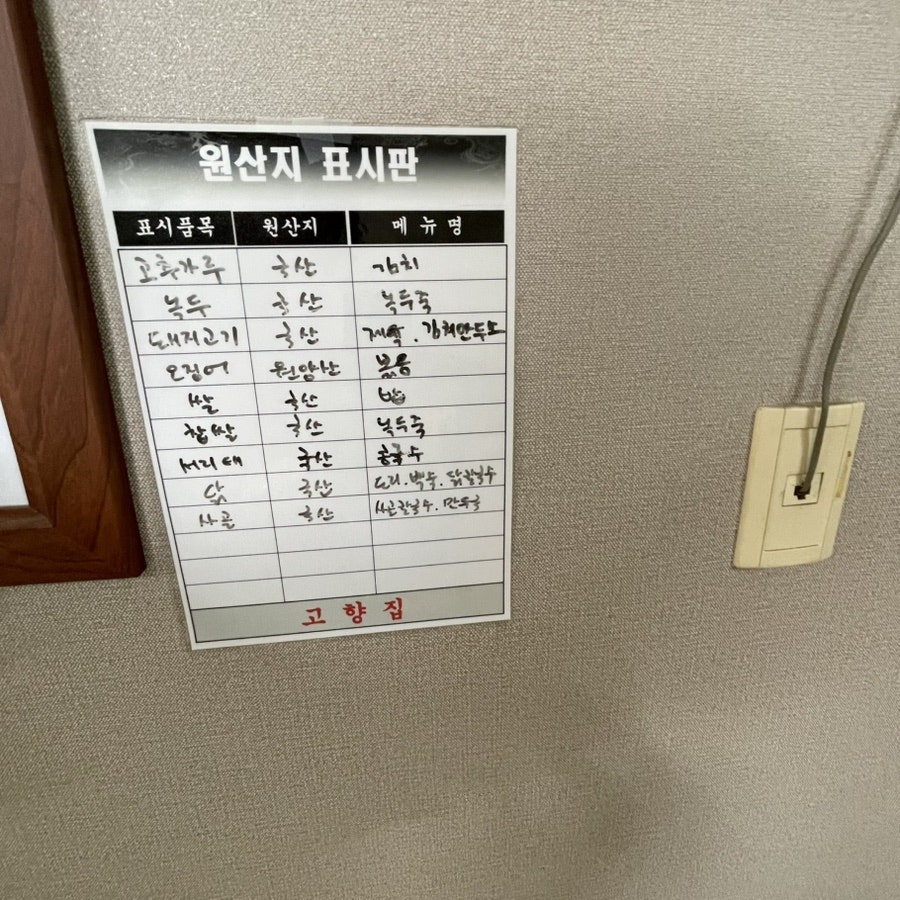 원산지 표시판
표시품목 원산지 메뉴명
고추가루 국산 김치
녹두 국산 녹두죽
돼지고기 국산 제육. 김치만두소
오징어 원양산 볶음
쌀 국산 밥
찹쌀 국산 녹두죽
서리태 국산 콩국수
닭 국산 도리. 백숙. 닭칼국수
사골 국산 사골칼국수. 만두국
고향집